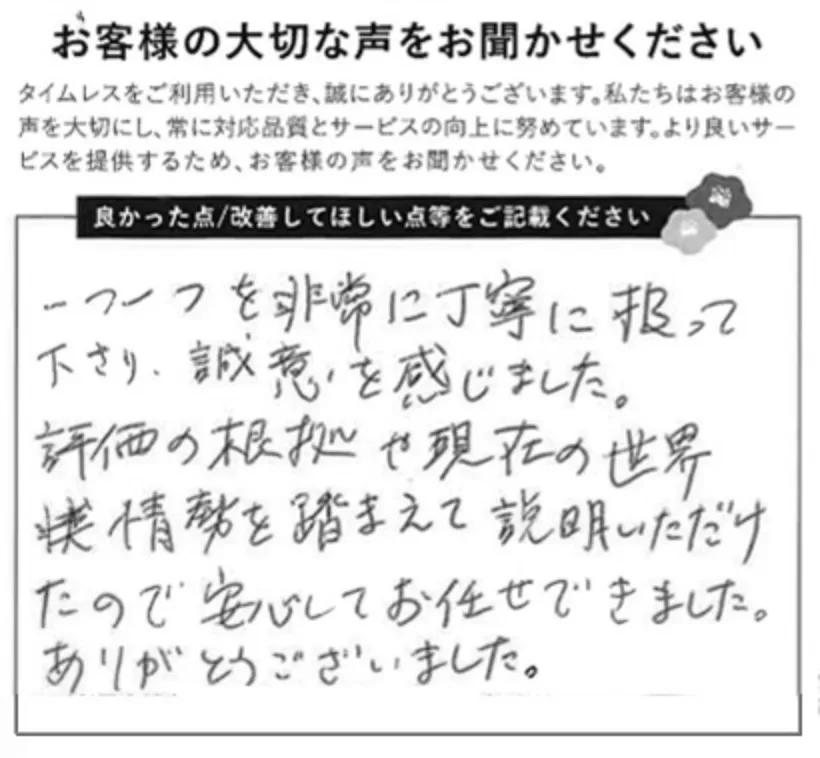 お客様の大切な声をお聞かせください
タイムレスをご利用いただき、誠にありがとうございます。私たちはお客様の
声を大切にし、常に対応品質とサービスの向上に努めています。より良いサー
ビスを提供するため、お客様の声をお聞かせください。
良かった点/改善してほしい点等をご記載ください
一つ一つを非常に丁寧に扱って
下さり、誠意を感じました。
評価の根拠や現在の世界
情勢を踏まえて説明いただけ
たので安心してお任せできました。
ありがとうございました。